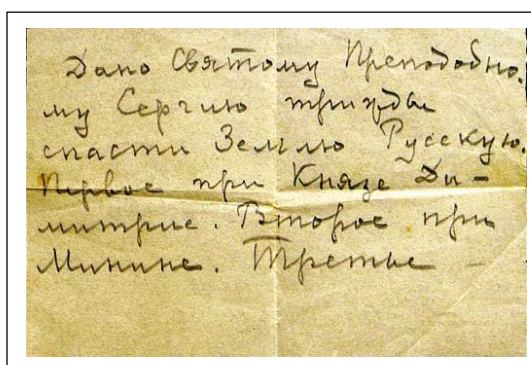 Дано Святому Преподобно.
му Сергию трижды
спасти Землю Русскую.
Первое при Князе Ди–
митрие. Второе при
Минине. Третье –